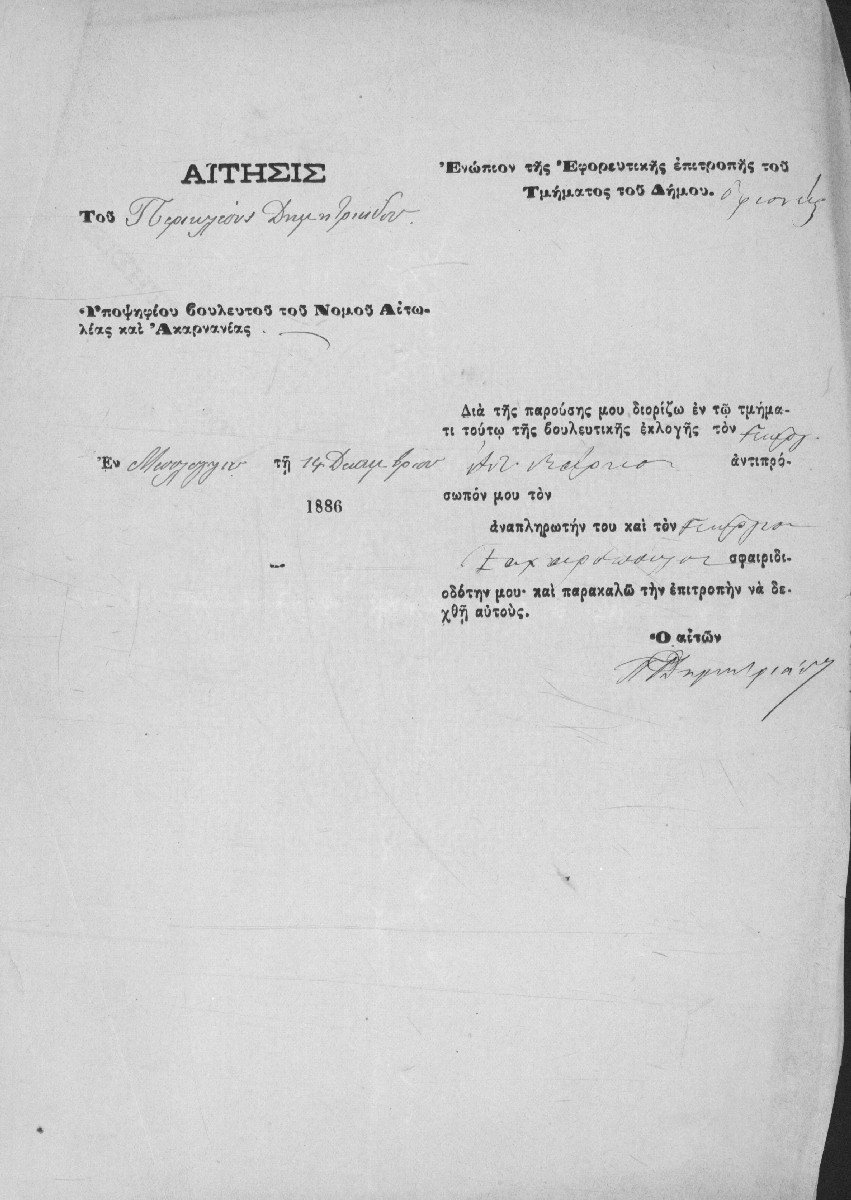 ΑΙΤΗΣΙΣ
Τοῦ Περικλέους Δημητριάδου
Ὑποψηφίου βουλευτοῦ τοῦ Νομοῦ Αἰτω-
λίας καὶ Ἀκαρνανίας
Ἐν Μεσολογγίῳ τῇ 14 Δεκεμβρίου
1886
Ἐνώπιον τῆς Ἐφορευτικῆς ἐπιτροπῆς τοῦ
Τμήματος τοῦ Δήμου. Ὀφιονείας
Διὰ τῆς παρούσης μου διορίζω ἐν τῷ τμήμα-
τι τούτῳ τῆς βουλευτικῆς ἐκλογῆς τὸν Γεώργ.
ἀντιπρό-
σωπόν μου τὸν
ἀναπληρωτήν του καὶ τὸν Γεώργιον
σφαιριδι-
οδότην μου· καὶ παρακαλῶ τὴν ἐπιτροπὴν νὰ δε-
χθῇ αὐτούς.
Ὁ αἰτῶν
Π Δημητριάδης